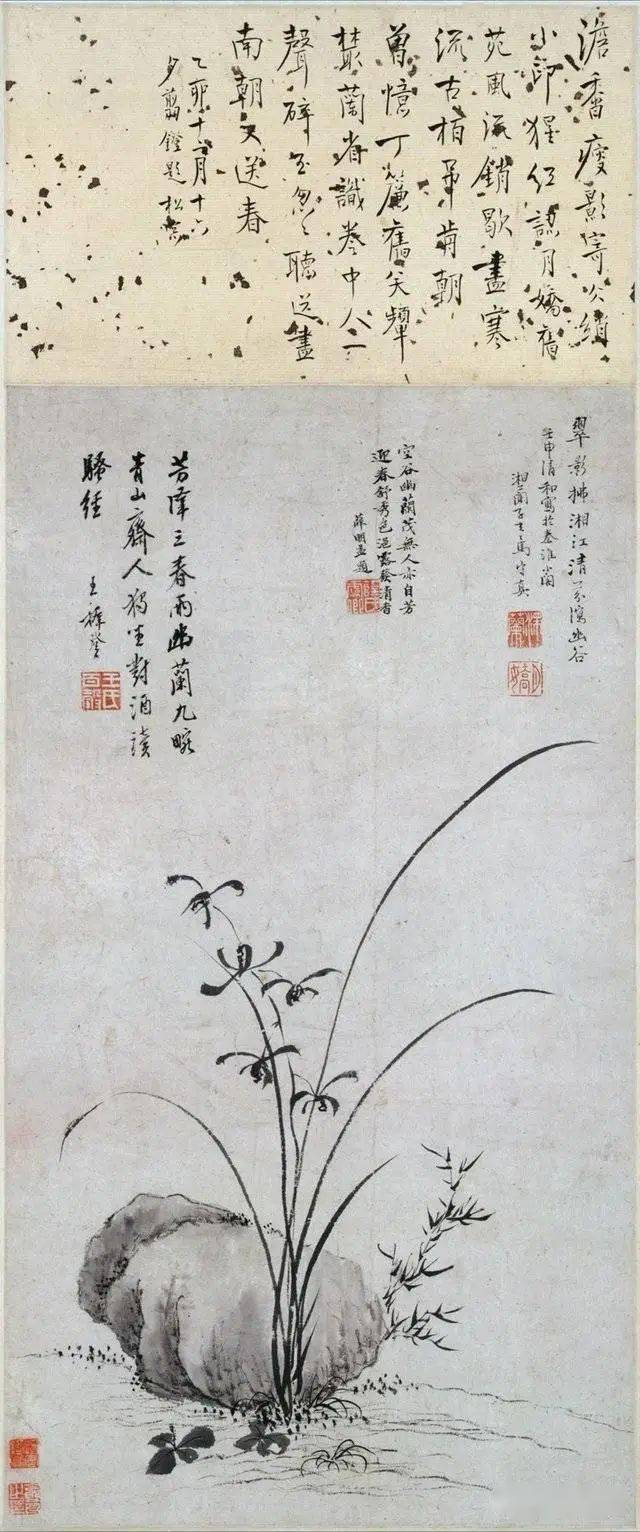 澹香瘦影寄冰綃
小印猩紅認月嬌舊
苑風流銷歇盡寒
流古柏弔前朝
曾憶丁簾舊笑顰
叢蘭省識卷中人一
聲碎玉忽々聽送盡
南朝又送春
乙卯十二月十六
夕翦鐙題
翠影拂湘江清芬瀉幽谷
壬申清和寫於秦淮小閣
湘蘭子馬守真
湘蘭
月嬌
空谷幽蘭茂無人亦自芳
迎春舒秀色浥露發清香
薛明益題
芳澤三春雨幽蘭九畹
青山齋人獨坐對酒讀
騷經
王穉登
王氏百穀